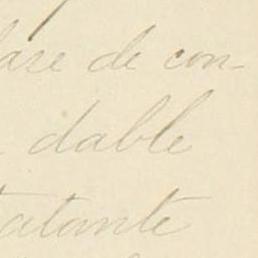 lare de con-
dable
tatante